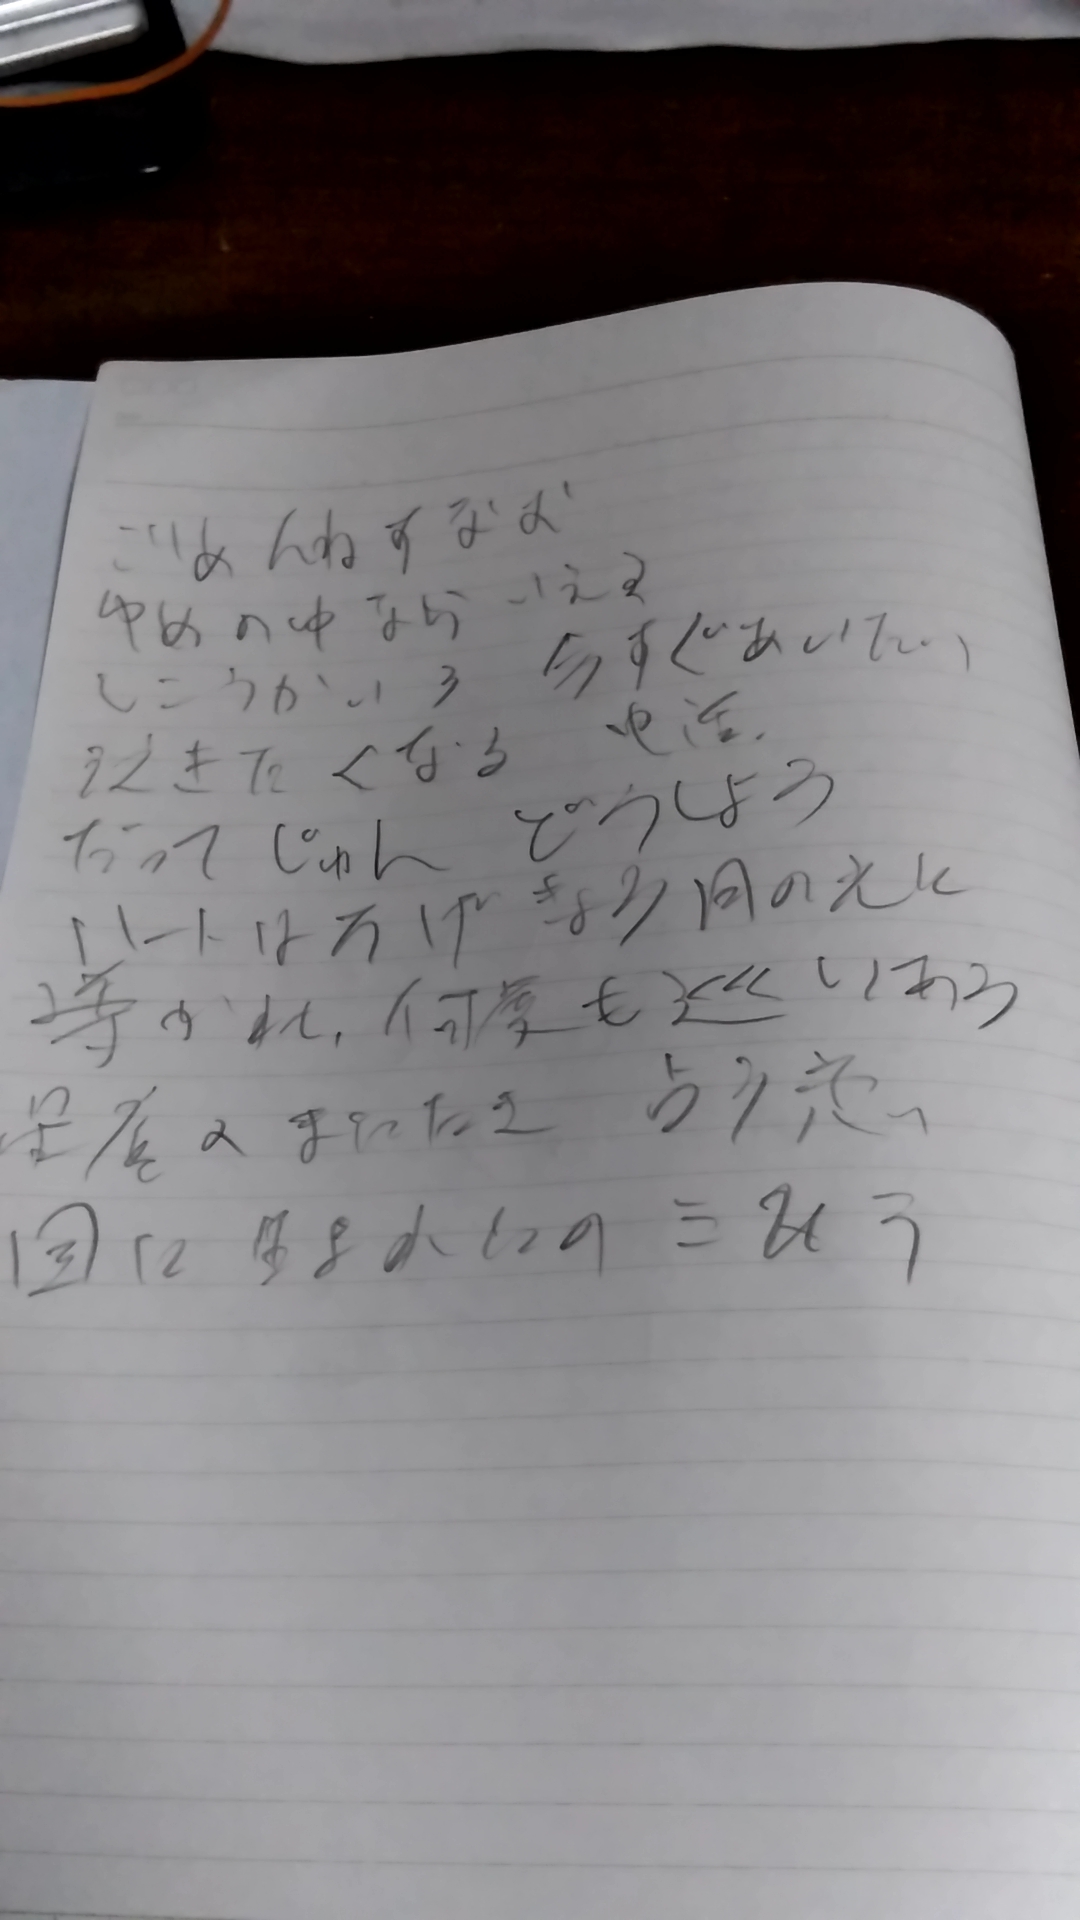 ごめんねすなお
ゆめの中なら いえる
しこうかいろ 今すぐあいたい
なきたくなる 電話
だって じゅん どうしよう
ハートは万げきょう 月の光に
導かれ 何度も巡りあう
星座の またたき 占う恋
国に 生まれたの ミラ